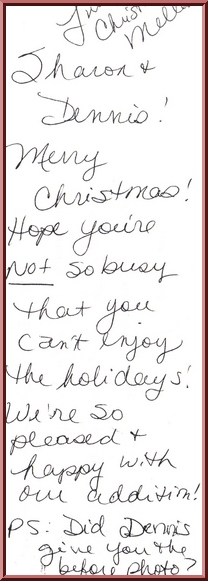 Christ
Sharon &
Dennis!
Merry
Christmas!
Hope you're
not so busy
that you
can't enjoy
the holidays!
We're so
pleased &
happy with
our addition!
PS: Did Dennis
give you the
before photo?